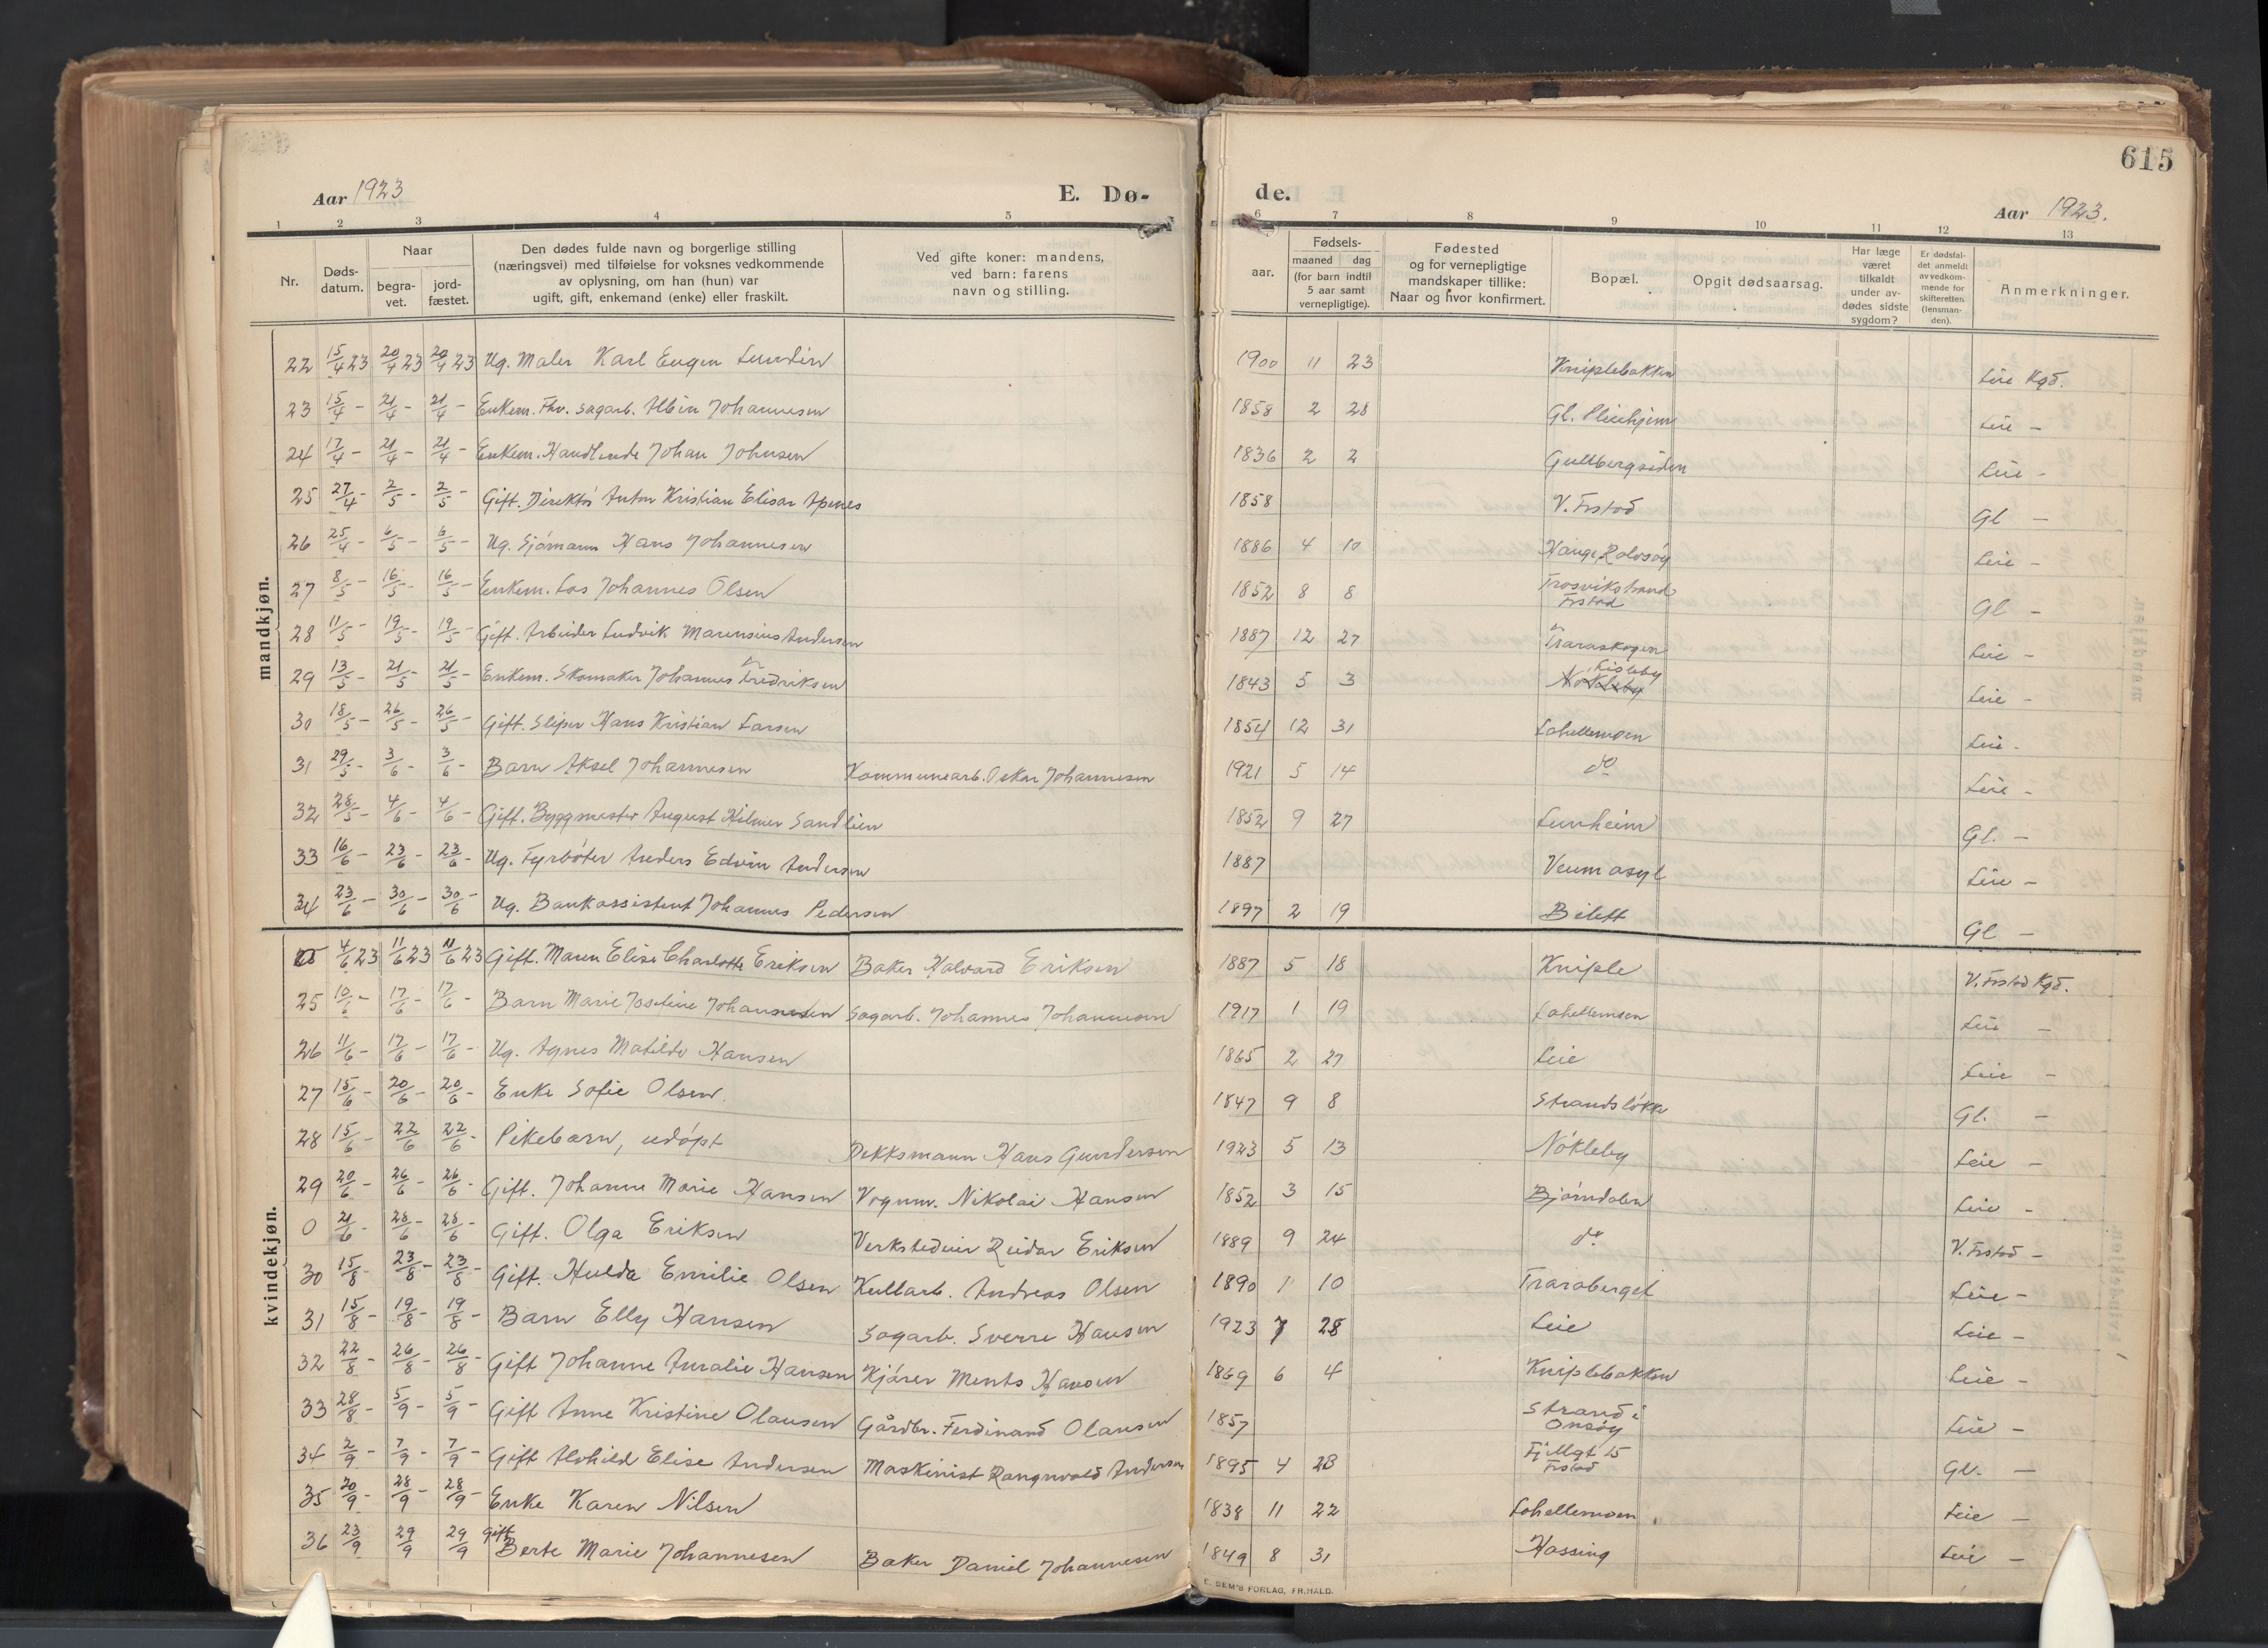 615
Aar 1923
E. Dø-
de.
Aar 1923.
1 2 3 4 5 6 7 8 9 10 11 12 13
Nr.
Døds-
datum.
Naar
begra-
vet.
jord-
fæstet.
Den dødes fulde navn og borgerlige stilling
(næringsvei) med tilføielse for voksnes vedkommende
av oplysning, om han (hun) var
ugift, gift, enkemand (enke) eller fraskilt.
Ved gifte koner: mandens,
ved barn: farens
navn og stilling.
Fødsels-
aar.
maaned dag
(for barn indtil
5 aar samt
vernepligtige).
Fødested
og for vernepligtige
mandskaper tillike:
Naar og hvor konfirmert.
Bopæl.
Opgit dødsaarsag.
Har læge
været
tilkaldt
under av-
dødes sidste
sygdom?
Er dødsfal-
det anmeldt
av vedkom-
mende for
skifteretten
(lensman-
den).
Anmerkninger.
mandkjøn.
22 15/4 23 20/4 23 20/4 23 Ug. Maler Karl Eugen Lundin 1900 11 23 Kniplebakken Leie Kgd.
23 15/4 - 21/4 - 21/4 - Enkem. Fhv. sagarb. Albin Johannesen 1858 2 28 Gl. Pleiehjem Leie -
24 17/4 - 21/4 - 21/4 - Enkem. Handlende Johan Johnsen 1836 2 2 Gullbergsiden Leie -
25 27/4 - 2/5 - 2/5 - Gift. Direktør Anton Kristian Elisar Apenes 1858 V. Frstad Gl -
26 25/4 - 6/5 - 6/5 - Ug. Sjømann Hans Johannesen 1886 4 10 Hauge, Rolvsøy Leie -
27 8/5 - 16/5 - 16/5 - Enkem. Los Johannes Olsen 1852 8 8 Trosvikstrand Frstad Gl -
28 11/5 - 19/5 - 19/5 - Gift. Arbeider Ludvik Marensius Andersen 1887 12 27 Traraskogen Leie -
29 13/5 - 21/5 - 21/5 - Enkem. Skomaker Johannes Fredriksen 1843 5 3 Lisleby Nøkleby Leie -
30 18/5 - 26/5 - 26/5 - Gift. Sliper Hans Kristian Larsen 1854 12 31 Lahellemoen Leie -
31 29/5 - 3/6 - 3/6 - Barn Aksel Johannesen Kommunearb. Oskar Johannesen 1921 5 14 do Leie -
32 28/5 - 4/6 - 4/6 - Gift. Byggmester August Hilmer Sandlien 1852 9 27 Lunheim Gl. -
33 16/6 - 23/6 - 23/6 - Ug. Fyrbøter Anders Edvin Andersen 1887 Veum asyl Leie -
34 23/6 - 30/6 - 30/6 - Ug. Bankassistent Johannes Pedersen 1897 2 19 Bilett Gl -
kvindekjøn.
4/6 23 11/6 23 11/6 23 Gift. Maren Elise Charlotte Eriksen Baker Halvard Eriksen 1887 5 18 Kniple V. Frstad Kgd.
25 10/6 - 17/6 - 17/6 - Barn Marie Josefine Johannesen Sagarb. Johannes Johannesen 1917 1 19 Lahellemoen Leie -
26 11/6 - 17/6 - 17/6 - Ug. Agnes Matilde Hansen 1865 2 27 Leie Leie -
27 15/6 - 20/6 - 20/6 - Enke Sofie Olsen. 1847 9 8 Strandsløkka Gl. -
28 15/6 - 22/6 22/6 - Pikebarn, udøpt Dekksmann Hans Gundersen 1923 5 13 Nøkleby Leie -
29 20/6 - 26/6 - 26/6 - Gift. Johanne Marie Hansen Vognm. Nikolai Hansen 1852 3 15 Bjørndalen Leie -
0 21/6 - 28/6 - 28/6 - Gift. Olga Eriksen Verkstedeier Reidar Eriksen 1889 9 24 do V. Frstad -
30 15/8 - 23/8 - 23/8 - Gift. Hulda Emilie Olsen Kullarb. Andreas Olsen 1890 1 10 Traraberget Leie -
31 15/8 - 19/8 - 19/8 - Barn Elly Hansen Sagarb. Sverre Hansen 1923 7 28 Leie Leie -
32 22/8 - 26/8 - 26/8 - Gift Johanne Amalie Hansen Kjører Ments Hansen 1869 6 4 Kniplebakken Leie -
33 28/8 - 5/9 - 5/9 - Gift Anne Kristine Olausen Gårdbr. Ferdinand Olausen 1857 Strand i Onsøy Leie -
34 2/9 - 7/9 - 7/9 - Gift Alvhild Elise Andersen Maskinist Rangnvald Andersen 1895 4 23 Fjellgt 15 Frstad Gl. -
35 20/9 - 28/9 - 28/9 - Enke Karen Nilsen 1838 11 22 Lahellemoen Leie -
36 23/9 29/9 29/9 gift Berte Marie Johannesen Baker Daniel Johannesen 1849 8 31 Hassing Leie -
E. SEM'S FORLAG, FR.HALD.